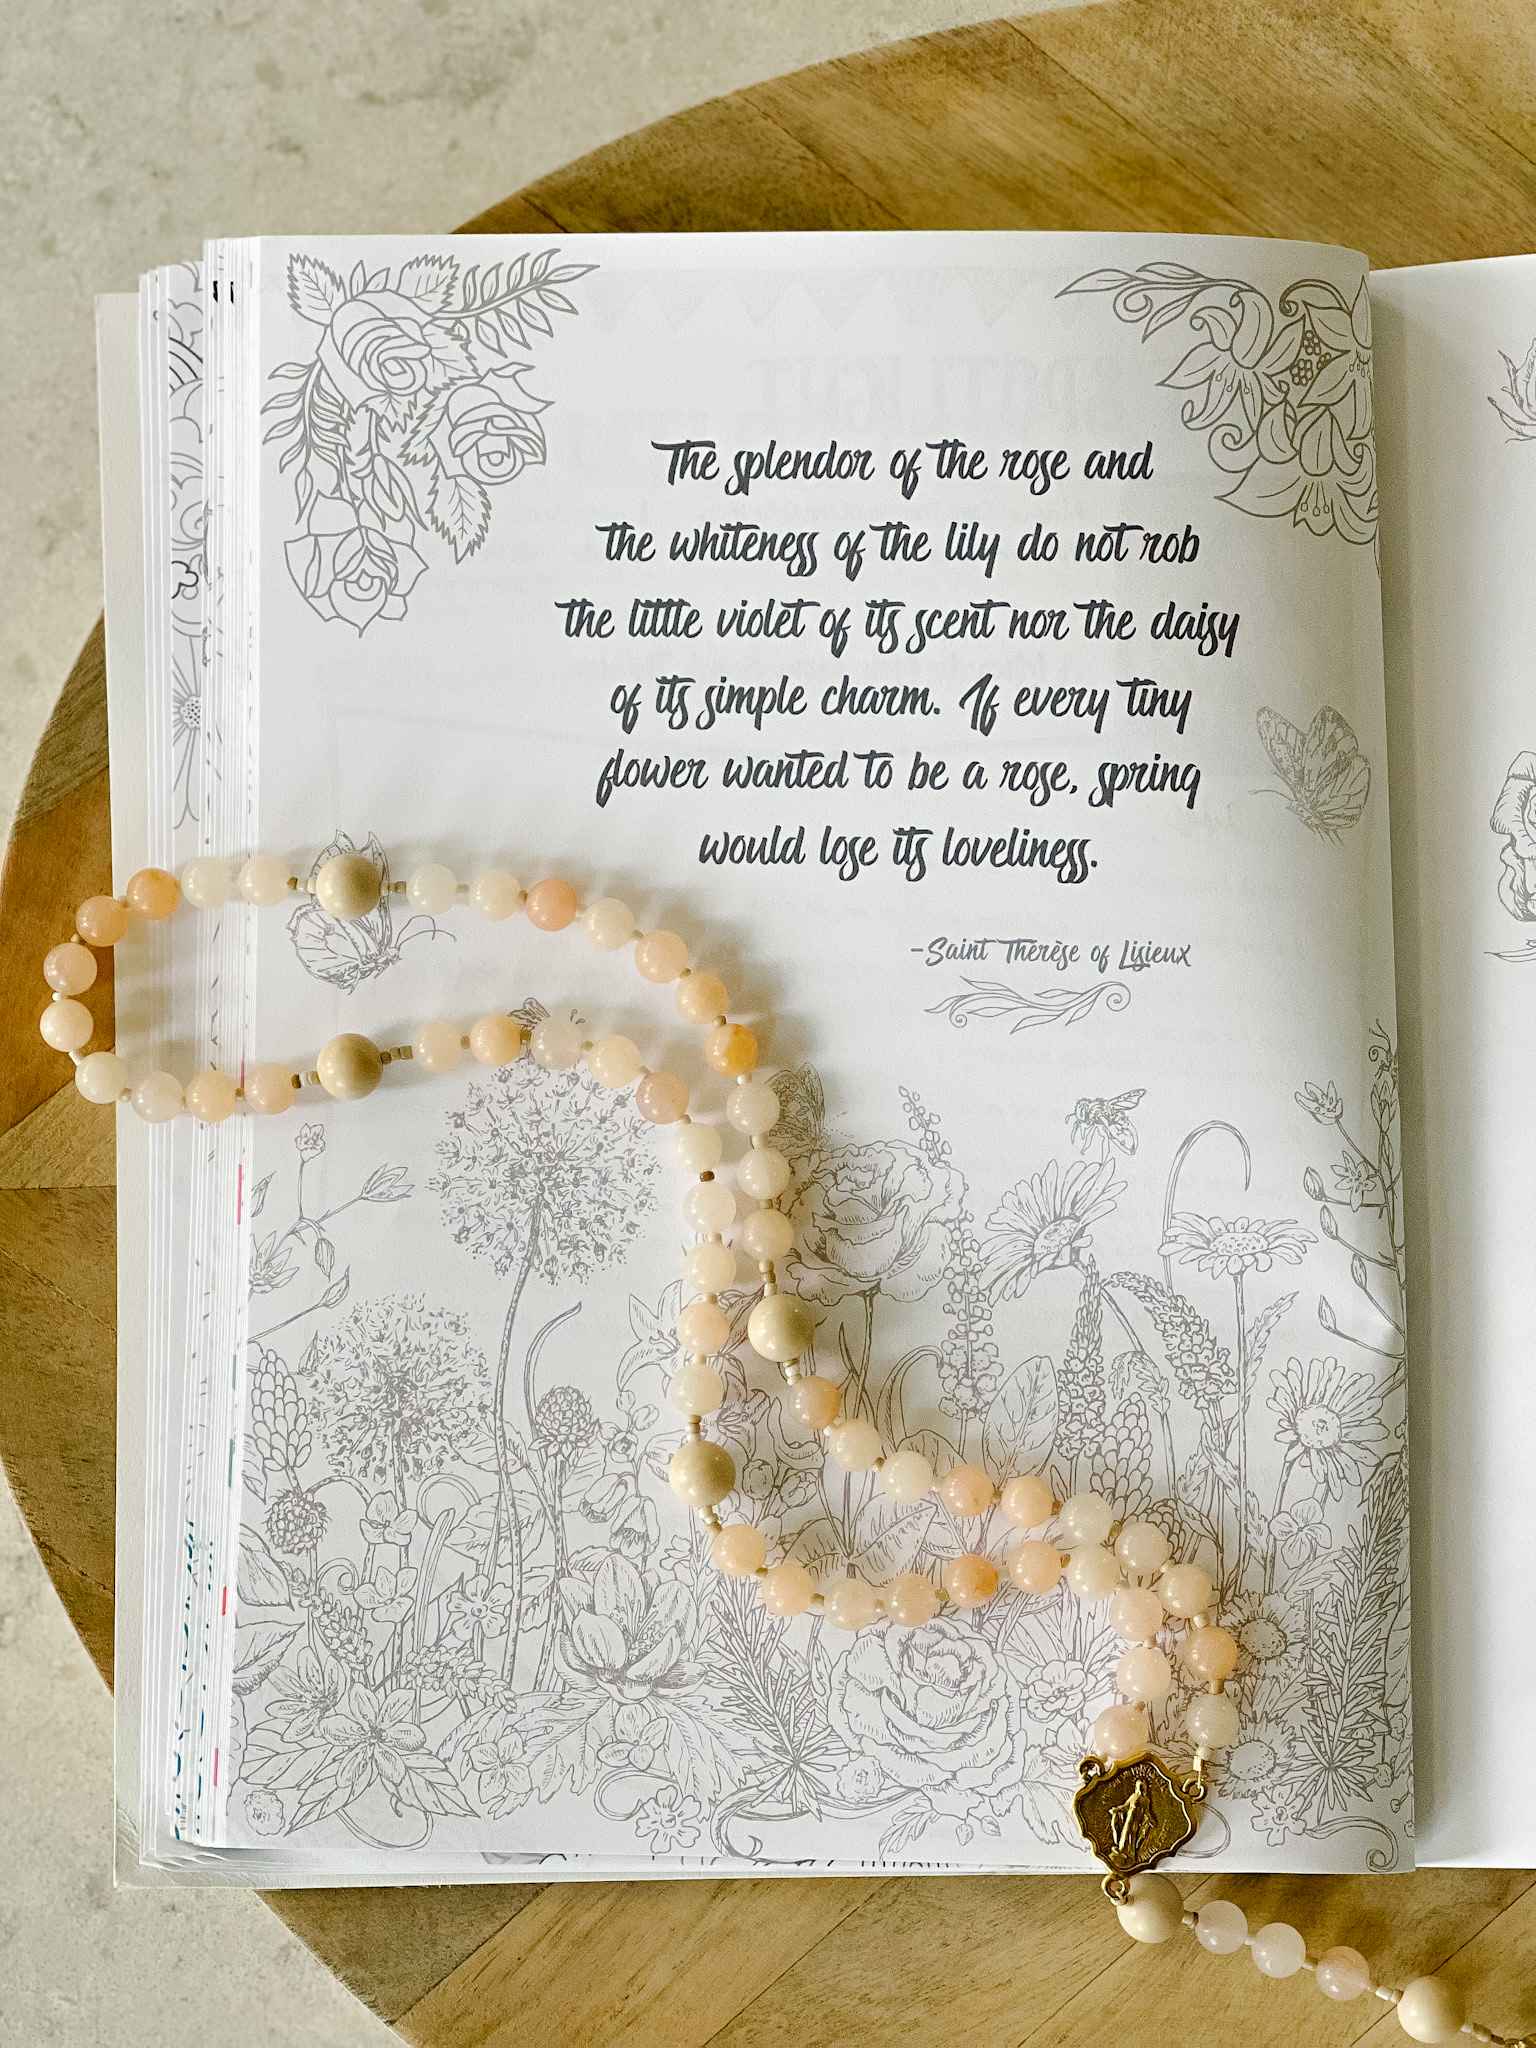 The splendor of the rose and
the whiteness of the lily do not rob
the little violet of its scent nor the daisy
of its simple charm. If every tiny
flower wanted to be a rose, spring
would lose its loveliness.
-Saint Thérèse of Lisieux